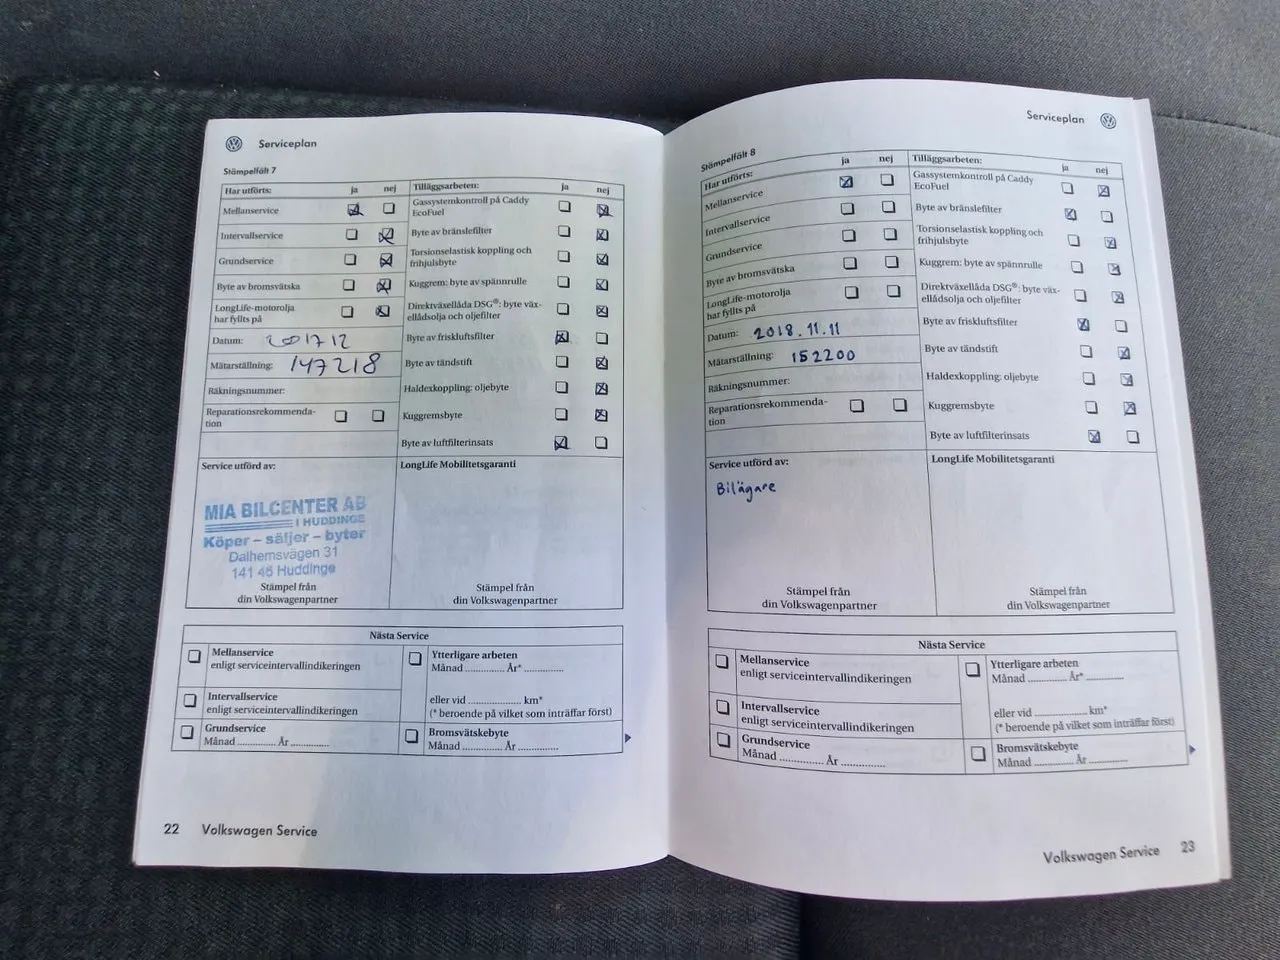 Serviceplan
Stämpelfält 7
Har utförts: ja nej
Mellanservice
Intervallservice
Grundservice
Byte av bromsvätska
LongLife-motorolja
har fyllts på
Datum: 201712
Mätarställning: 147218
Räkningsnummer:
Reparationsrekommenda-
tion
Tilläggsarbeten: ja nej
Gassystemkontroll på Caddy
EcoFuel
Byte av bränslefilter
Torsionselastisk koppling och
frihjulsbyte
Kuggrem: byte av spännrulle
Direktväxellåda DSG®: byte väx-
ellådsolja och oljefilter
Byte av friskluftsfilter
Byte av tändstift
Haldexkoppling: oljebyte
Kuggremsbyte
Byte av luftfilterinsats
Service utförd av:
MIA BILCENTER AB
I HUDDINGE
Köper – säljer – byter
Dalhemsvägen 31
141 46 Huddinge
Stämpel från
din Volkswagenpartner
LongLife Mobilitetsgaranti
Stämpel från
din Volkswagenpartner
Nästa Service
Mellanservice
enligt serviceintervallindikeringen
Intervallservice
enligt serviceintervallindikeringen
Grundservice
Månad .............. År ..............
Ytterligare arbeten
Månad .............. År* ..............
eller vid .................... km*
(* beroende på vilket som inträffar först)
Bromsvätskebyte
Månad .............. År ..............
22 Volkswagen Service
Serviceplan
Stämpelfält 8
Har utförts: ja nej
Mellanservice
Intervallservice
Grundservice
Byte av bromsvätska
LongLife-motorolja
har fyllts på
Datum: 2018.11.11
Mätarställning: 152200
Räkningsnummer:
Reparationsrekommenda-
tion
Tilläggsarbeten: ja nej
Gassystemkontroll på Caddy
EcoFuel
Byte av bränslefilter
Torsionselastisk koppling och
frihjulsbyte
Kuggrem: byte av spännrulle
Direktväxellåda DSG®: byte väx-
ellådsolja och oljefilter
Byte av friskluftsfilter
Byte av tändstift
Haldexkoppling: oljebyte
Kuggremsbyte
Byte av luftfilterinsats
Service utförd av:
Bilägare
Stämpel från
din Volkswagenpartner
LongLife Mobilitetsgaranti
Stämpel från
din Volkswagenpartner
Nästa Service
Mellanservice
enligt serviceintervallindikeringen
Intervallservice
enligt serviceintervallindikeringen
Grundservice
Månad .............. År ..............
Ytterligare arbeten
Månad .............. År* ..............
eller vid .................... km*
(* beroende på vilket som inträffar först)
Bromsvätskebyte
Månad .............. År ..............
Volkswagen Service 23